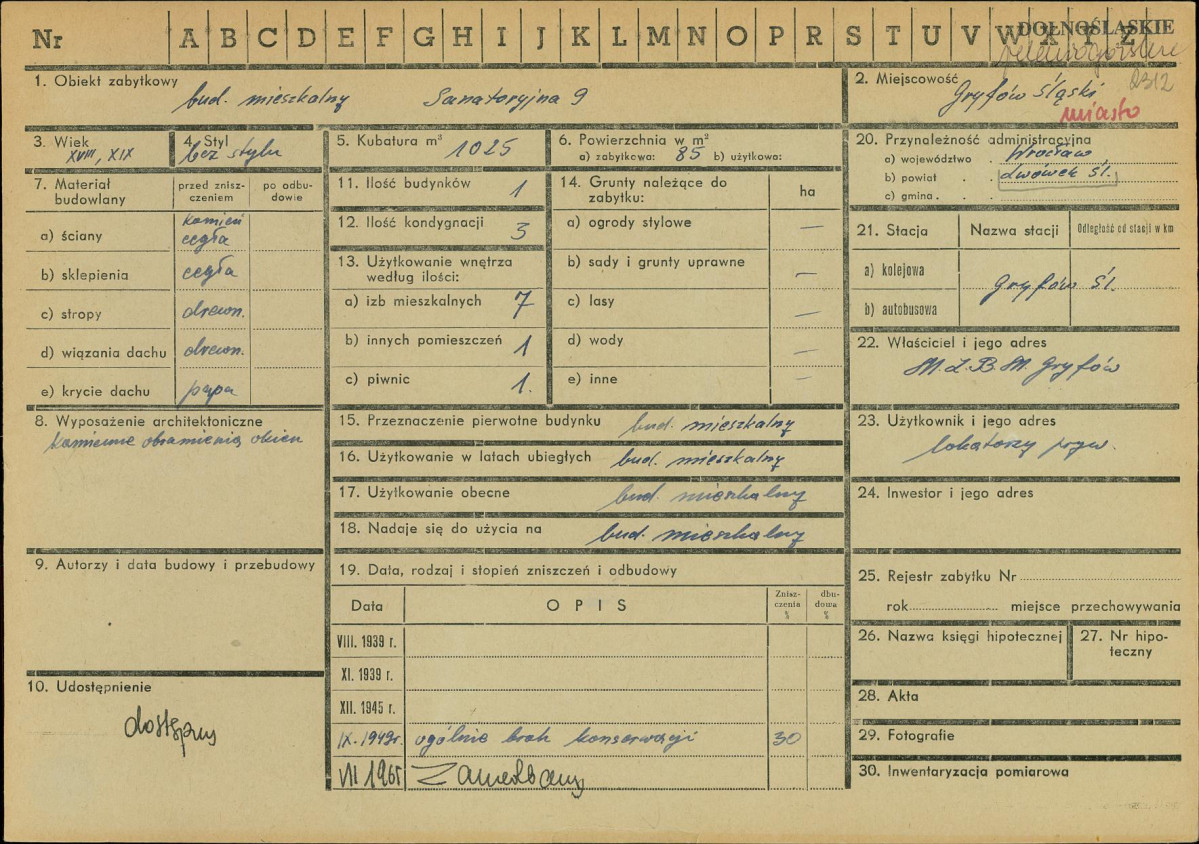 Nr A B C D E F G H I J K L M N O P R S T U V W X Y Z
DOLNOŚLĄSKIE
jeleniogórskie
2312
1. Obiekt zabytkowy
bud. mieszkalny Sanatoryjna 9
2. Miejscowość
Gryfów Śląski
miasto
3. Wiek
XVIII, XIX
4. Styl
bez stylu
5. Kubatura m³ 1025
6. Powierzchnia w m²
a) zabytkowa: 85 b) użytkowa:
7. Materiał budowlany
przed zniszczeniem
po odbudowie
a) ściany kamień cegła
b) sklepienia cegła
c) stropy drewn.
d) wiązania dachu drewn.
e) krycie dachu papa
8. Wyposażenie architektoniczne
kamienne obramienia okien
9. Autorzy i data budowy i przebudowy
10. Udostępnienie
dostępny
11. Ilość budynków 1
12. Ilość kondygnacji 3
13. Użytkowanie wnętrza
według ilości:
a) izb mieszkalnych 7
b) innych pomieszczeń 1
c) piwnic 1.
14. Grunty należące do
zabytku:
ha
a) ogrody stylowe —
b) sady i grunty uprawne —
c) lasy —
d) wody —
e) inne —
15. Przeznaczenie pierwotne budynku bud. mieszkalny
16. Użytkowanie w latach ubiegłych bud. mieszkalny
17. Użytkowanie obecne bud. mieszkalny
18. Nadaje się do użycia na bud. mieszkalny
19. Data, rodzaj i stopień zniszczeń i odbudowy
Data OPIS Zniszczenia % dbudowa %
VIII. 1939 r.
XI. 1939 r.
XII. 1945 r.
IX. 1949r. ogólnie brak konserwacji 30
VII 1965 Zaniedbany
20. Przynależność administracyjna
a) województwo . Wrocław
b) powiat . . Lwówek Śl.
c) gmina . .
21. Stacja Nazwa stacji Odległość od stacji w km
a) kolejowa
Gryfów Śl.
b) autobusowa
22. Właściciel i jego adres
M.Z.B.M. Gryfów
23. Użytkownik i jego adres
lokatorzy pryw.
24. Inwestor i jego adres
25. Rejestr zabytku Nr
rok miejsce przechowywania
26. Nazwa księgi hipotecznej
27. Nr hipoteczny
28. Akta
29. Fotografie
30. Inwentaryzacja pomiarowa